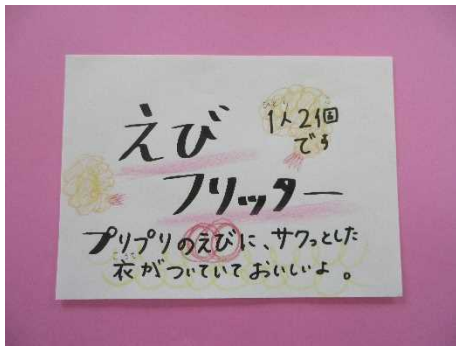 えび
フリッター
1人2個
です
プリプリのえびに、サクっとした
衣がついていておいしいよ。